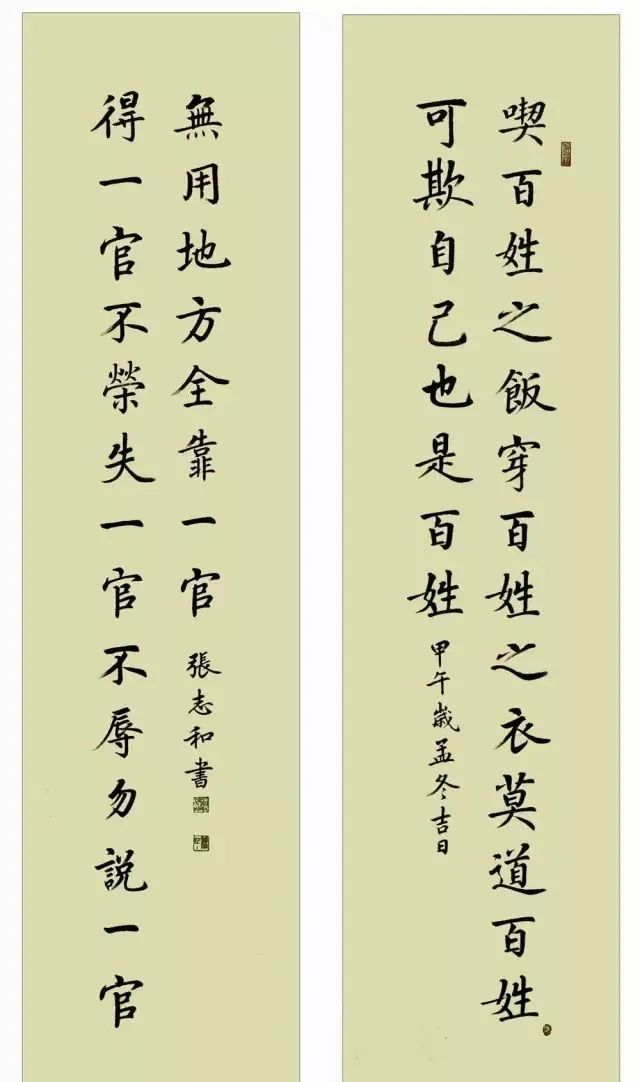 喫百姓之飯穿百姓之衣莫道百姓
可欺自己也是百姓
甲午歲孟冬吉日
得一官不榮失一官不辱勿說一官
無用地方全靠一官
張志和書